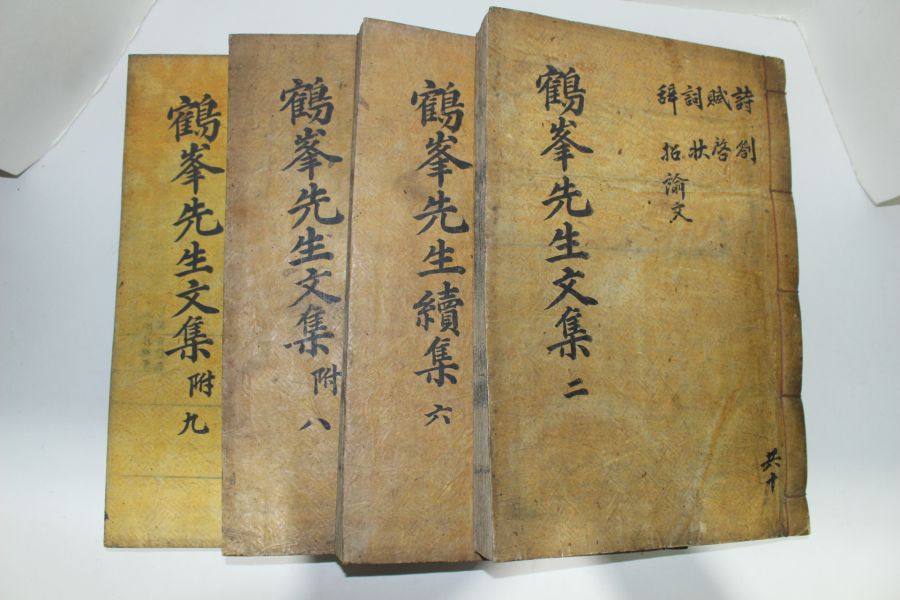 詩 劄
賦 啓
詞 狀
辭 招諭文
共十
鶴峯先生文集 二
鶴峯先生續集 六
鶴峯先生文集 附 八
鶴峯先生文集 附 九